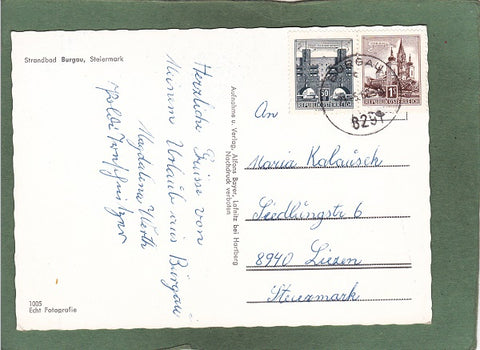 Strandbad Burgau, Steiermark
Herzliche Grüsse von
Meinem Urlaub aus Burgau
Magdalena Werth
Aufnahme u. Verlag, Alfons Bayer, Lafnitz bei Hartberg
Nachdruck verboten
50
REPUBLIK ÖSTERREICH
1S
REPUBLIK ÖSTERREICH
BURGAU
8291
An
Maria Kalausch
Siedlungstr. 6
8940 Liezen
Steiermark
1005
Echt Fotografie